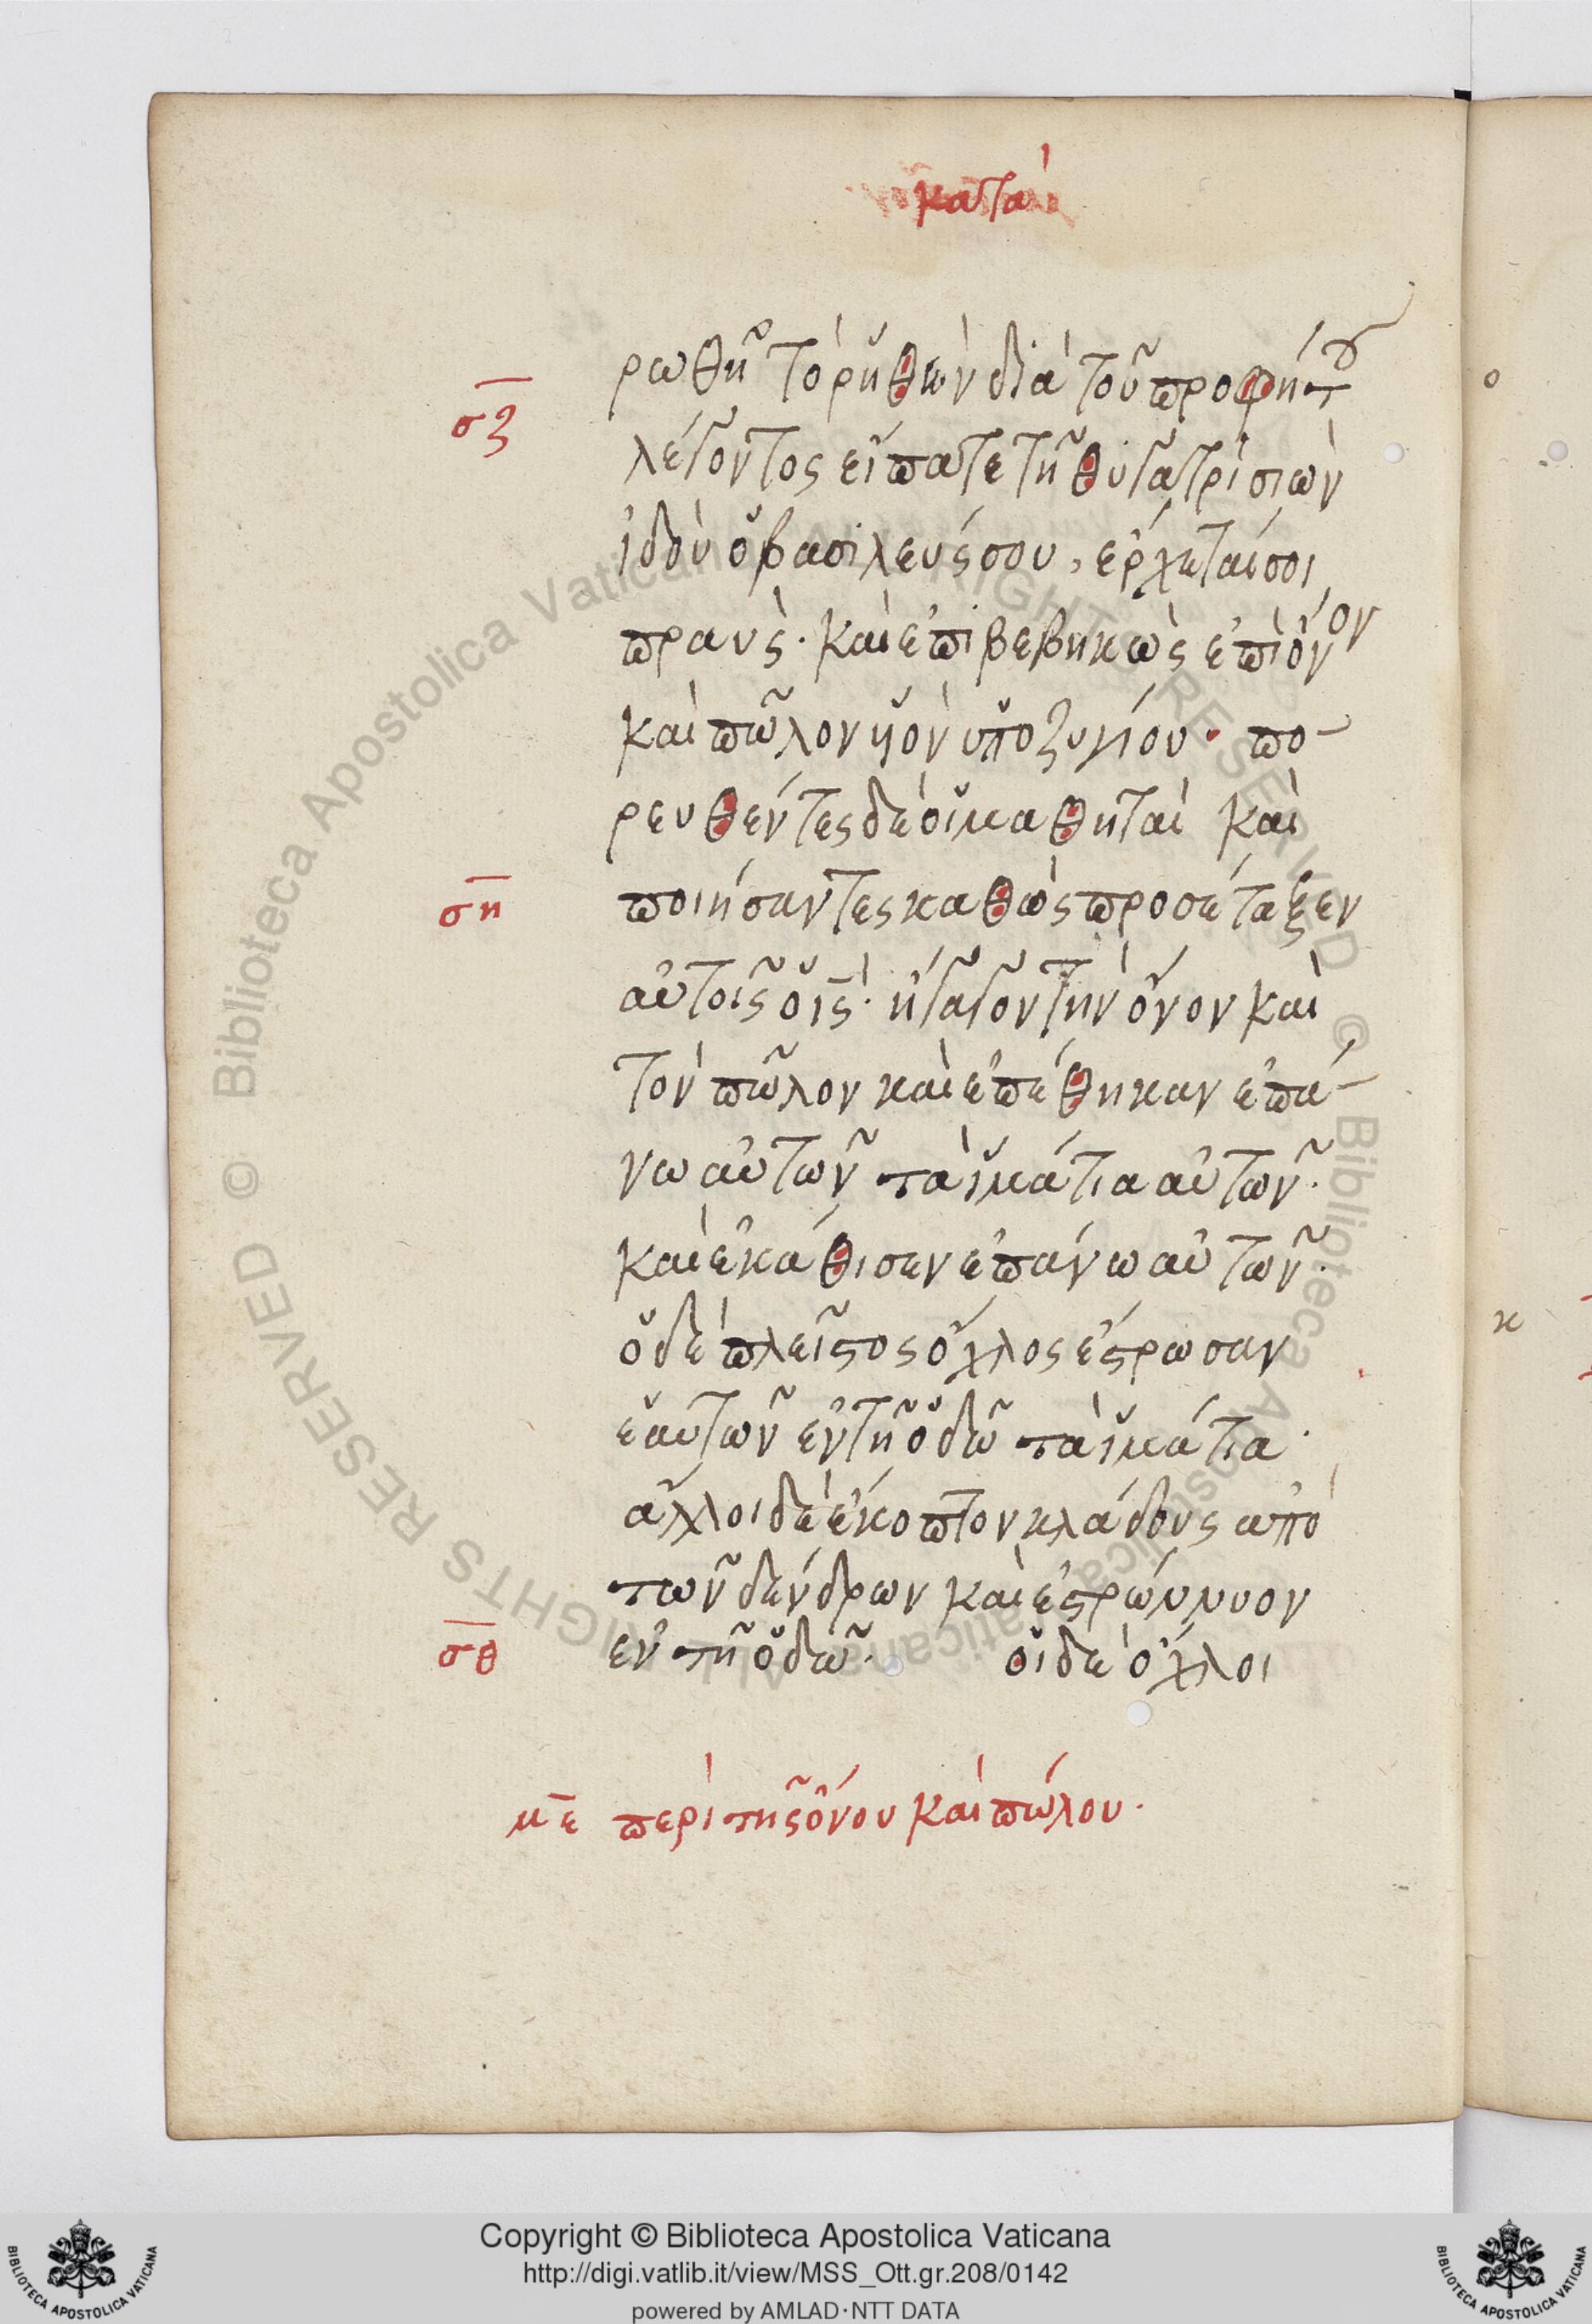 κατὰ
ρωθῆ τὸ ῥηθὲν διὰ τοῦ προφήτου
σζ
λέγοντος εἴπατε τῆ θυγατρὶ σιὼν
ἰδοὺ ὁ βασιλεύς σου, ἔρχεταί σοι
πραυς· καὶ ἐπιβεβηκὼς ἐπὶ ὄνον
καὶ πῶλον υἱὸν ὑποζυγίου· πο-
ρευθέντες δὲ οἱ μαθηταὶ καὶ
ση
ποιήσαντες καθὼς προσέταξεν
αὐτοῖς ὁ ις· ἤγαγον τὴν ὄνον καὶ
τὸν πῶλον καὶ ἐπέθηκαν ἐπά-
νω αὐτῶν τὰ ἱμάτια αὐτῶν·
καὶ ἐκάθισεν ἐπάνω αὐτῶν·
ὁ δὲ πλεῖστος ὄχλος ἔστρωσαν
ἑαυτῶν ἐν τῆ ὁδῶ τὰ ἱμάτια·
ἄλλοι δὲ ἔκοπτον κλάδους ἀπὸ
τῶν δένδρων καὶ ἐστρώννυον
σθ
ἐν τῆ ὁδῶ· οἱ δὲ ὄχλοι
με περὶ τῆς ὄνου καὶ πώλου·
© Biblioteca Apostolica Vaticana ALL RIGHTS RESERVED
Copyright © Biblioteca Apostolica Vaticana
http://digi.vatlib.it/view/MSS_Ott.gr.208/0142
powered by AMLAD·NTT DATA
BIBLIOTECA APOSTOLICA VATICANA
BIBLIOTECA APOSTOLICA VATICANA